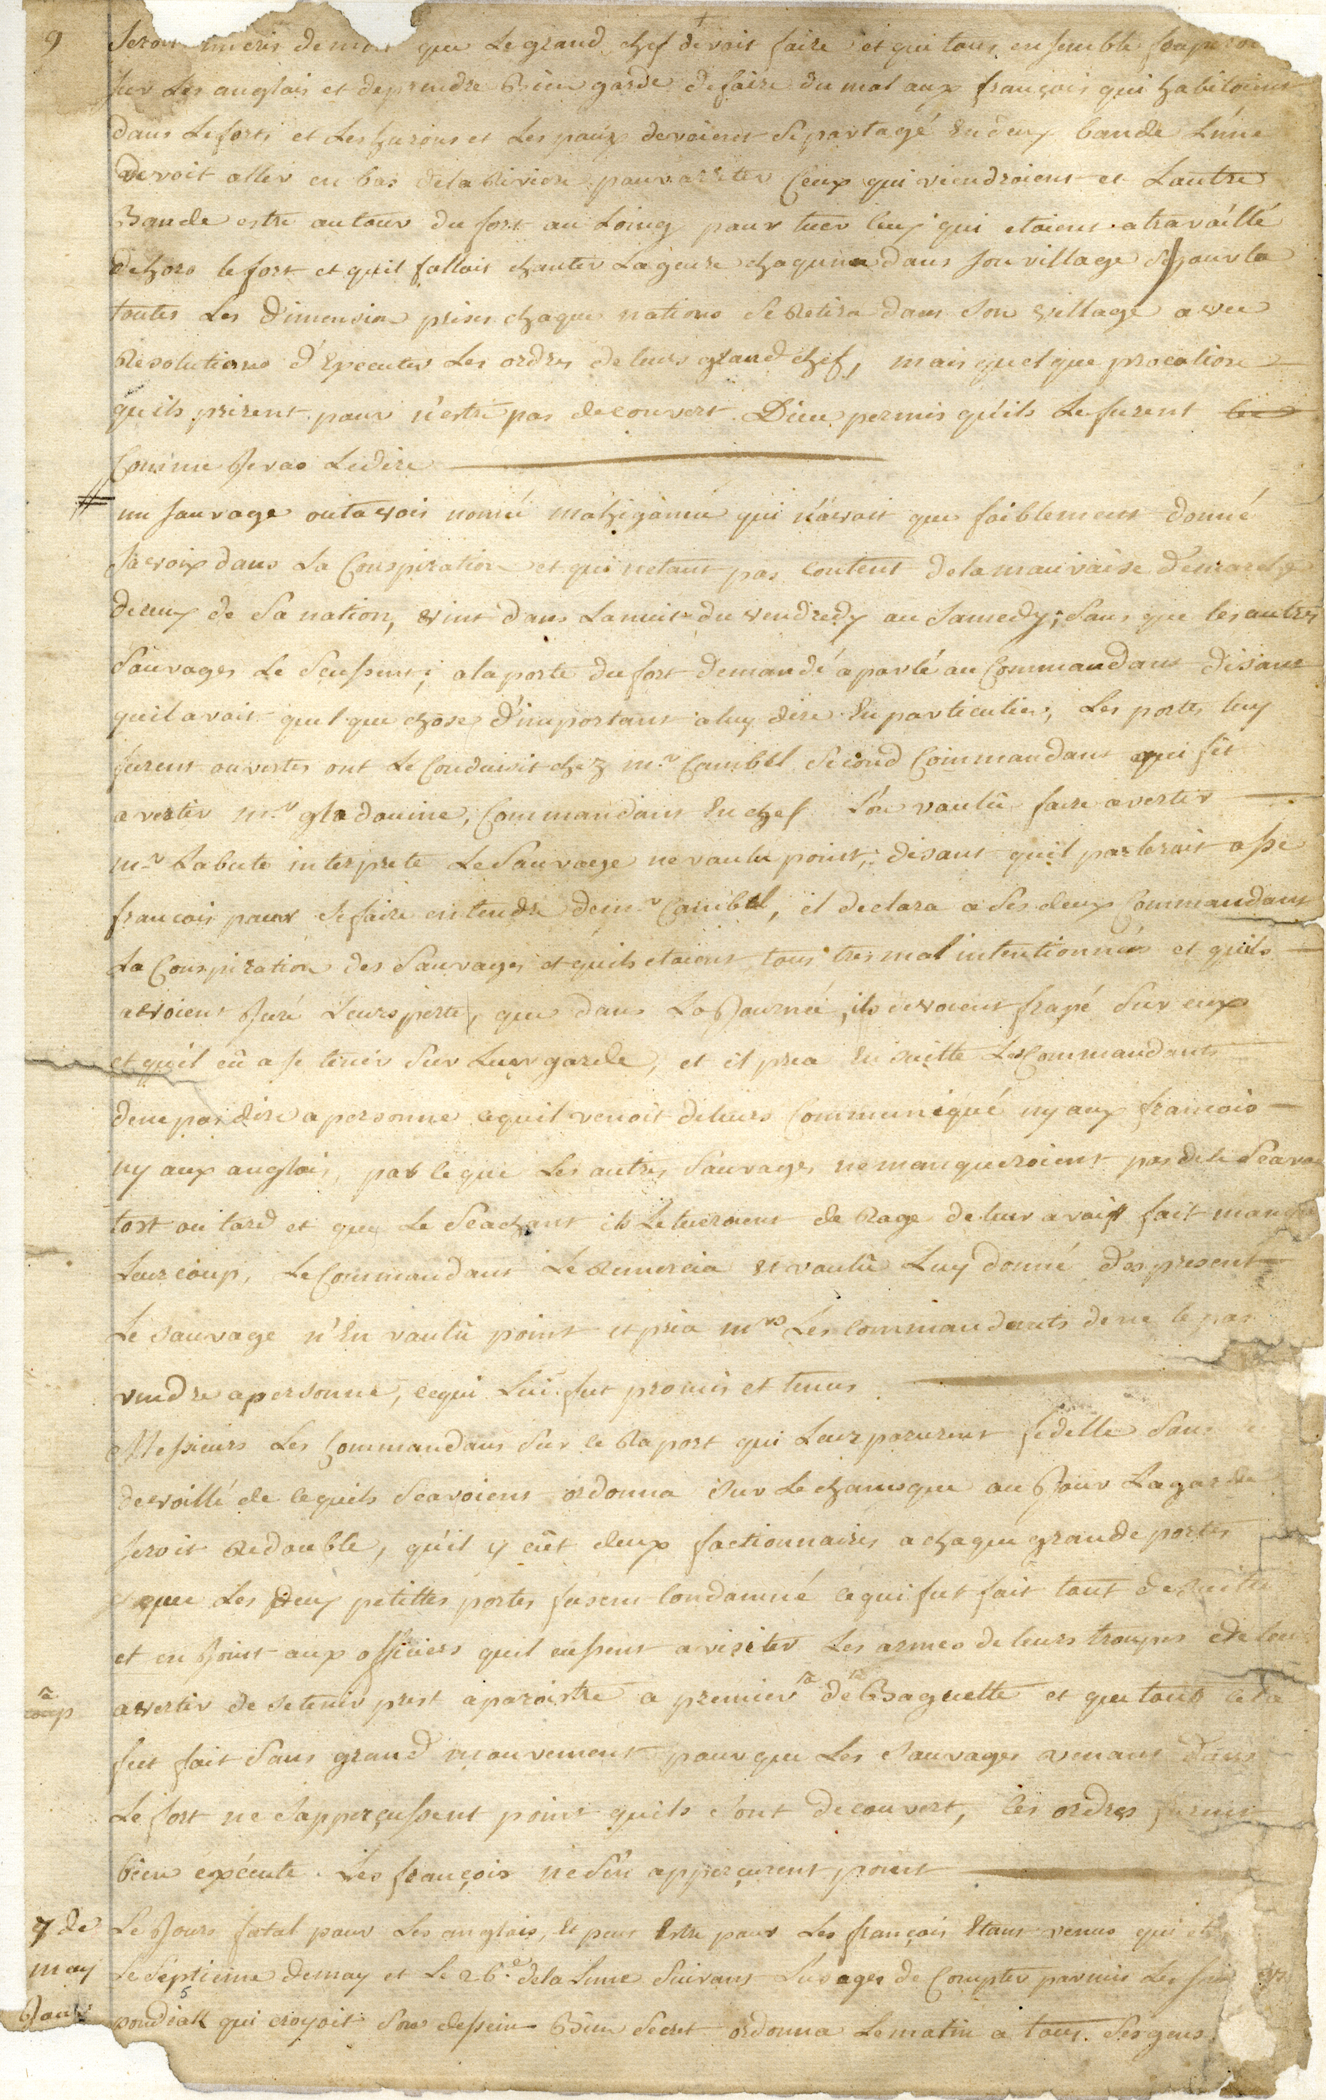 9
Seroit de mort que Le grand chef devoit faire et qui tous ensemble
sur Les anglois et de prendre Bien garde de faire du mal aux françois qui habitoient
dans Le forts et Les hurons et Les poux devoient Se partagé En deux bande L'une
devoit aller en bas de la Riviere pour arreter Ceux qui viendroient et Lautre
Bande estre autour du fort au Loing pour tuer ceux qui etoient a travaillé
dehors le fort et quil falloit chanter La geure chaqune dans Son village
toutes Les dimension prises chaque nations Se Retira dans Son village avec
Resolutions d'Executer Les ordres de leurs grand chef, mais quelque procotion
quils prirent pour n'estre pas decouvert Dieu permis qu'ils Le furent
Comme Je vas Le dire
un Sauvage outavois nommé mahigànne qui n'avoit que foiblement donné
Sa voix dans La Conspiration et qui netant pas Content de la mauvaise demarche
de ceux de Sa nation, vint dans La nuit du vendredy au Samedy; Sans que les autres
Sauvages Le Seussent; a la porte du fort demandé a parlé au Commandant disant
quil avoit quel que chose d'important a luy dire En particulier, Les portes luy
furent ouvertes ont Le Conduisit chez mr Cambel Second Commandant qui fit
avertir mr gladouine, Commandant En chef L'on voulû faire avertir
mr Labute interprete Le Sauvage ne voulu point, disant quil parleroit assé
francois pour Se faire entendre de mr Cambel, il declara a Ses deux Commandant
La Conspiration des Sauvages et quils etoient tous tres mal intentionnés et quils
avoient Juré Leurs perte, que dans La Journée, ils devoient frapé Sur eux
et qu'il eû a se tenir Sur Leur garde, et il pria En Suitte Les Commandants
de ne pas dire a personne ce quil venoit de leurs Communiqué ny aux francois
ny aux anglois, par ce que Les autres Sauvages ne manqueroient pas de le Seavoir
tost ou tard et que Le Seachant ils Le tueroient de Rage de leur avoir fait manqué
Leur coup, Le Commandant Le Remercia et voulû Luy donné des present
Le Sauvage n'En voulû point et pria mrs Les Commandants de ne le pas
vendre a personne, ce qui Lui fut promis et tenus
Messieurs Les Commandans Sur ce Raport qui Leur parurent fidelle Sans
devoillé de ce quils Seavoient ordonna Sur Le champ que au Jour La garde
Seroit Redouble, qu'il y eût deux factionnaires a chaque grande portes
que Les deux petittes portes fusent Condamné ce qui fut fait tout de Suite
et en Joint aux officiers quil eussent a visiter Les armes de leurs troupes et de les
coup
avertir de se tenir prest a paroistre a premier de Baguette et que tout cela
fut fait Sans grand mouvement pour que Les Sauvages venant dans
Le fort ne S'apperçussent point quils Sont decouvert, Ces ordres furent
bien executé Les françois ne S'en apperçurent point
7 de Le Jours fatal pour Les anglois, Et peut Estre pour Les françois Etant venus qui
may Le Septieme de may et Le 26.e de la Lune Suivant L'usage de Compter parmis Les
pondiak qui croyoit Son dessein Bien Secret ordonna Le matin a tous Ses gens